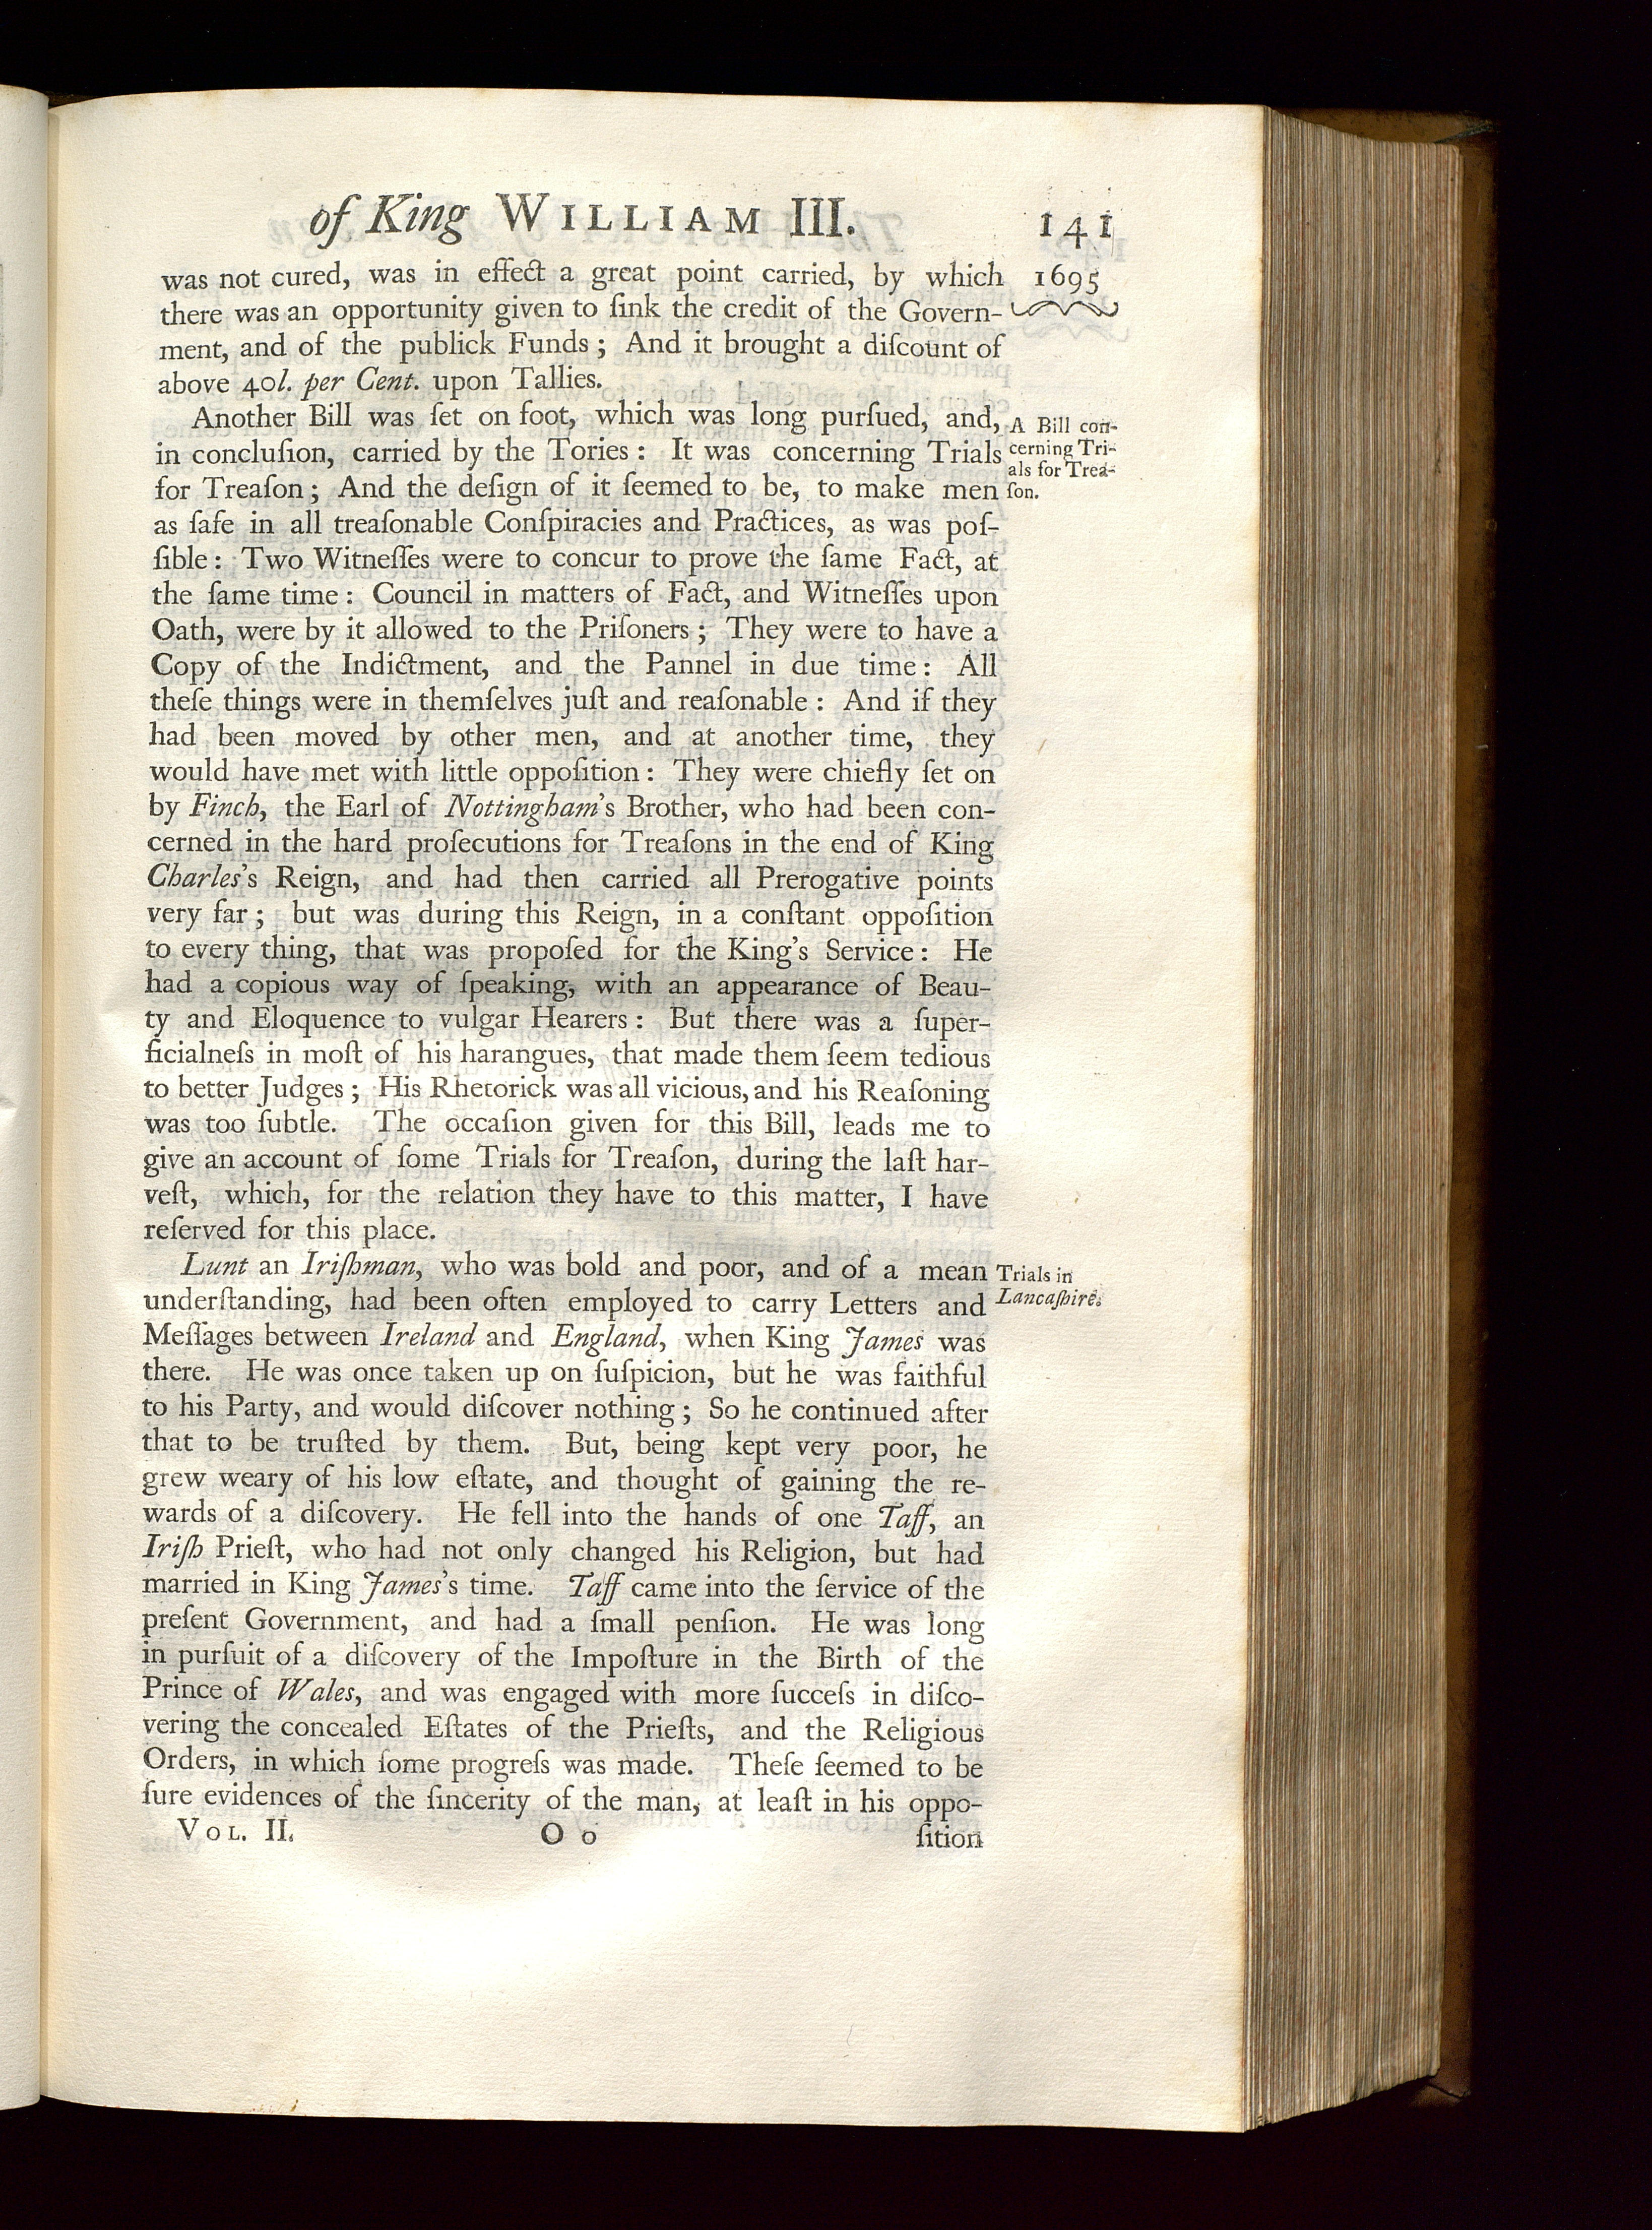 of King WILLIAM III. 141
was not cured, was in effect a great point carried, by which 1695
there was an opportunity given to ſink the credit of the Govern-
ment, and of the publick Funds; And it brought a diſcount of
above 40l. per Cent. upon Tallies.
Another Bill was ſet on foot, which was long purſued, and,
in concluſion, carried by the Tories: It was concerning Trials
for Treaſon; And the deſign of it ſeemed to be, to make men
A Bill con-
cerning Tri-
als for Trea-
ſon.
as ſafe in all treaſonable Conſpiracies and Practices, as was poſ-
ſible: Two Witneſſes were to concur to prove the ſame Fact, at
the ſame time: Council in matters of Fact, and Witneſſes upon
Oath, were by it allowed to the Priſoners; They were to have a
Copy of the Indictment, and the Pannel in due time: All
theſe things were in themſelves juſt and reaſonable: And if they
had been moved by other men, and at another time, they
would have met with little oppoſition: They were chiefly ſet on
by Finch, the Earl of Nottingham's Brother, who had been con-
cerned in the hard proſecutions for Treaſons in the end of King
Charles's Reign, and had then carried all Prerogative points
very far; but was during this Reign, in a conſtant oppoſition
to every thing, that was propoſed for the King's Service: He
had a copious way of ſpeaking, with an appearance of Beau-
ty and Eloquence to vulgar Hearers: But there was a ſuper-
ficialneſs in moſt of his harangues, that made them ſeem tedious
to better Judges; His Rhetorick was all vicious, and his Reaſoning
was too ſubtle. The occaſion given for this Bill, leads me to
give an account of ſome Trials for Treaſon, during the laſt har-
veſt, which, for the relation they have to this matter, I have
reſerved for this place.
Lunt an Iriſhman, who was bold and poor, and of a mean
underſtanding, had been often employed to carry Letters and
Trials in
Lancaſhire.
Meſſages between Ireland and England, when King James was
there. He was once taken up on ſuſpicion, but he was faithful
to his Party, and would diſcover nothing; So he continued after
that to be truſted by them. But, being kept very poor, he
grew weary of his low eſtate, and thought of gaining the re-
wards of a diſcovery. He fell into the hands of one Taff, an
Iriſh Prieſt, who had not only changed his Religion, but had
married in King James's time. Taff came into the ſervice of the
preſent Government, and had a ſmall penſion. He was long
in purſuit of a diſcovery of the Impoſture in the Birth of the
Prince of Wales, and was engaged with more ſucceſs in diſco-
vering the concealed Eſtates of the Prieſts, and the Religious
Orders, in which ſome progreſs was made. Theſe ſeemed to be
ſure evidences of the ſincerity of the man, at leaſt in his oppo-
VOL. II. O o ſition